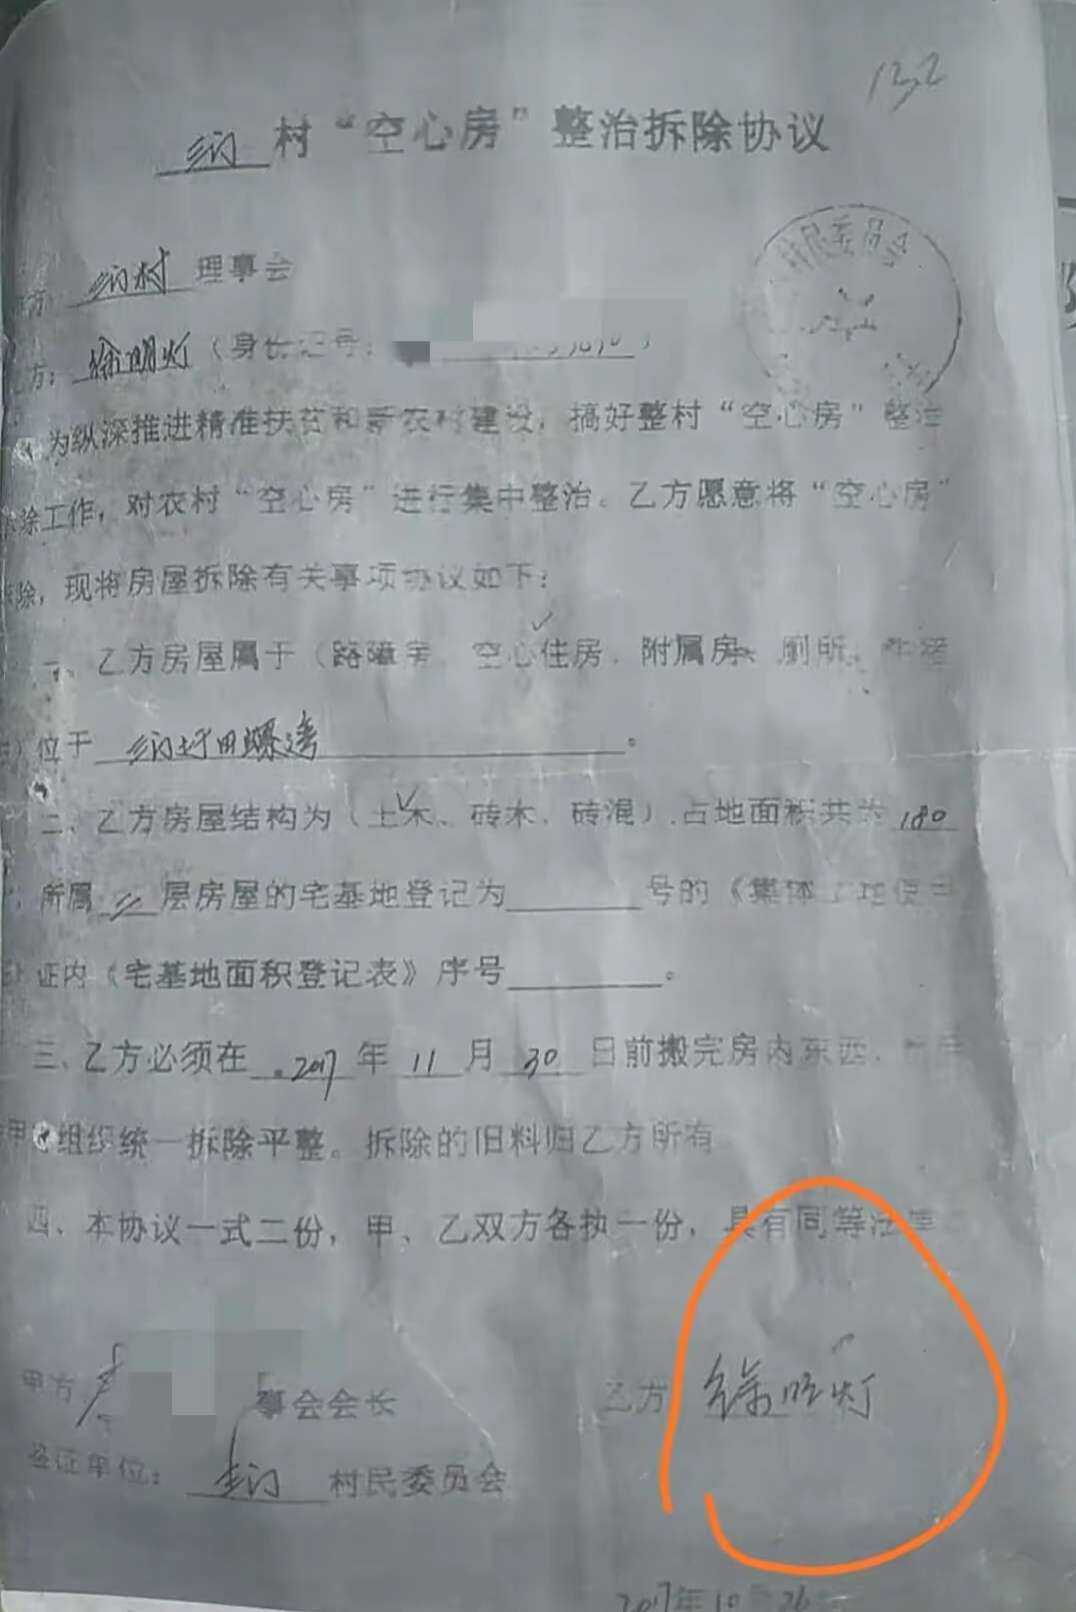 132
村“空心房”整治拆除协议
村民委员会
方： 村 理事会
方：徐明灯（身 号：
为纵深推进精准扶贫和新农村建设，搞好整村“空心房”整治
除工作，对农村“空心房”进行集中整治。乙方愿意将“空心房”
除，现将房屋拆除有关事项协议如下：
一、乙方房屋属于（路障房、空心住房、附属房、厕所、
位于 。
二、乙方房屋结构为（土木、砖木、砖混），占地面积共为 180
所属 层房屋的宅基地登记为 号的《集体土地使用
证内《宅基地面积登记表》序号 。
三、乙方必须在 2017 年 11 月 30 日前搬完房内东西，
甲 组织统一拆除平整。拆除的旧料归乙方所有
四、本协议一式二份，甲、乙双方各执一份，具有同等法律
甲方 事会会长 乙方 徐明灯
签证单位： 村民委员会
2017年10月26